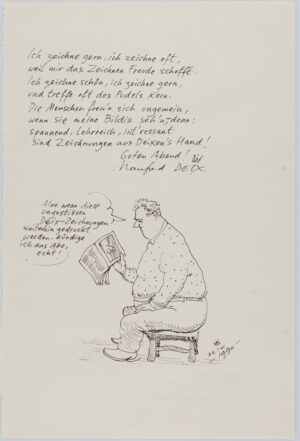 Ich zeichne gern, ich zeichne oft,
weil mir das Zeichnen Freude schafft.
Ich zeichne schön, ich zeichne gern,
und treffe oft des Pudels Kern.
Die Menschen freu'n sich ungemein,
wenn sie meine Bildis seh'n, denn:
spannend, lehrreich, int'ressant
sind Zeichnungen aus Deixen's Hand!
Guten Abend!
Manfred DEIX
Also wenn diese
ungustiösen
Deix-Zeichnungen
weiterhin gedruckt
werden, kündige
ich das Abo,
echt!
DEIX
1990